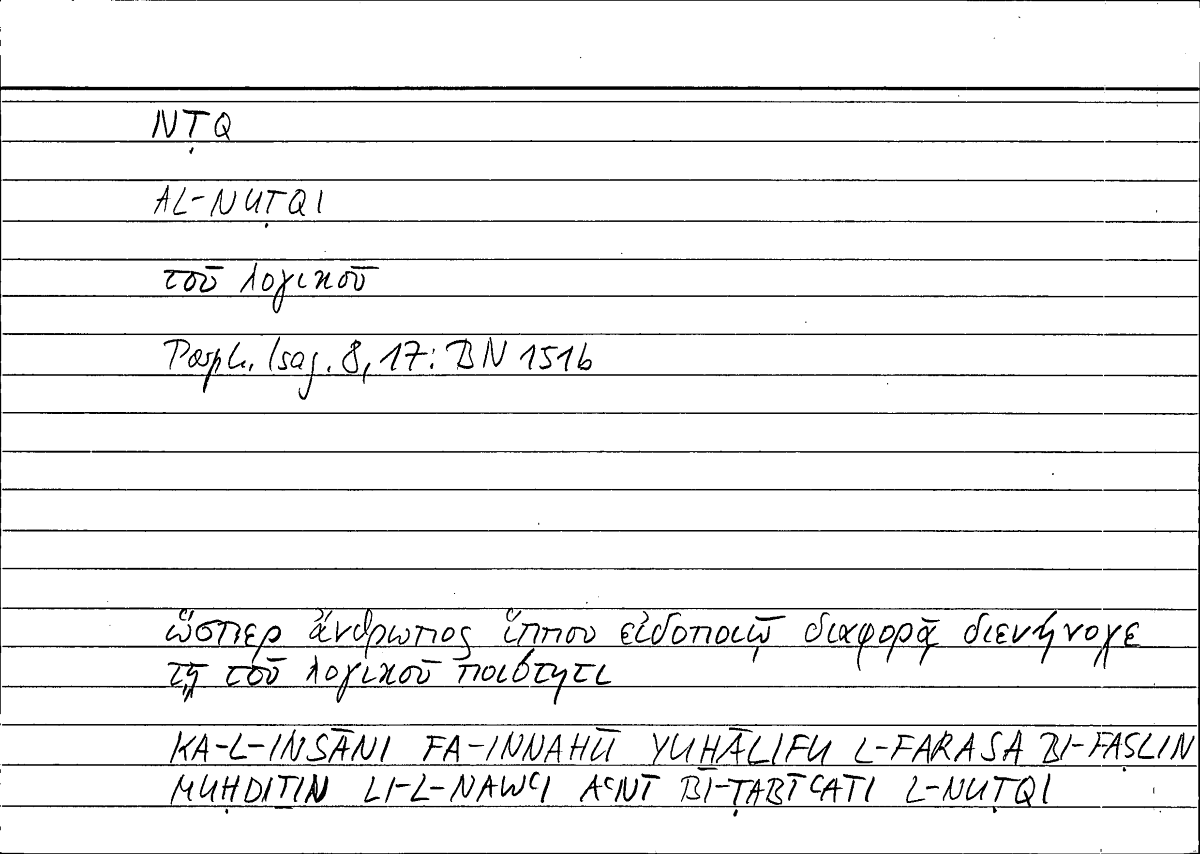 NṬQ
AL-NUṬQI
τοῦ λογικοῦ
Porph. Isag. 8, 17: BN 151b
ὥσπερ ἄνθρωπος ἵππου εἰδοποιῷ διαφορᾷ διενήνοχε
τῇ τοῦ λογικοῦ ποιότητι
KA-L-INSĀNI FA-INNAHŪ YUḪĀLIFU L-FARASA BI-FAṢLIN
MUḤDIṮIN LI-L-NAWʿI AʿNĪ BI-ṬABĪʿATI L-NUṬQI